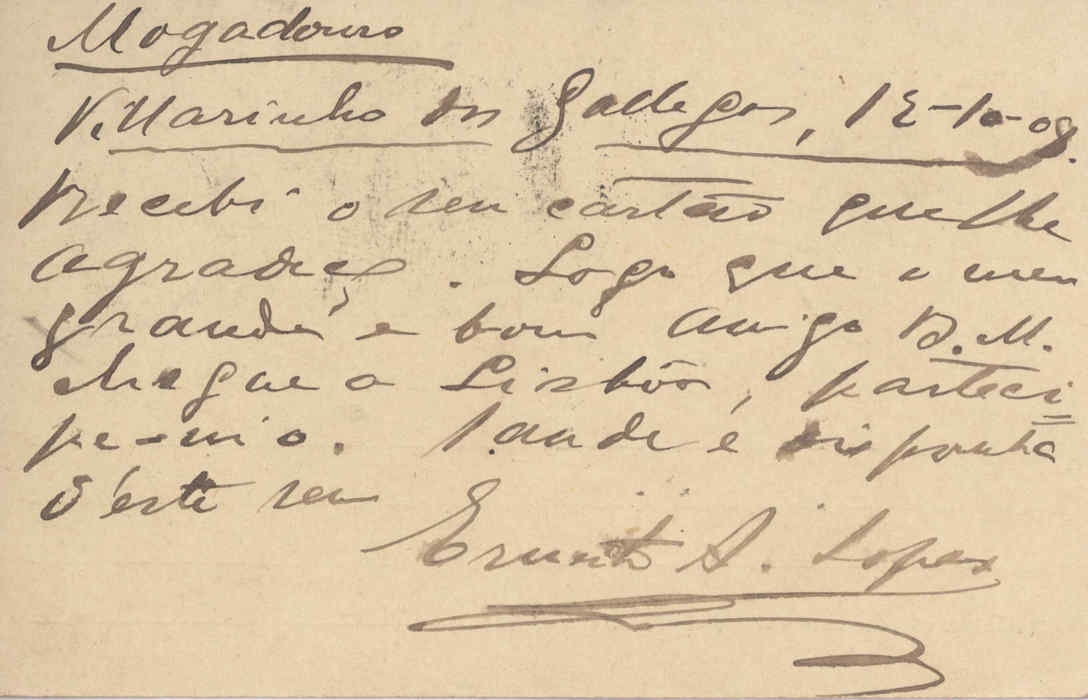 Mogadouro
Villarinho dos Gallegos, 12-10-08.
Recebi o seu cartão que lhe
agradeço. Logo que o meu
grande e bom amigo B. M.
chegue a Lisbôa, parteci=
pe-m'o. Saude e disponha
d'este seu
Ernesto A. Lopes